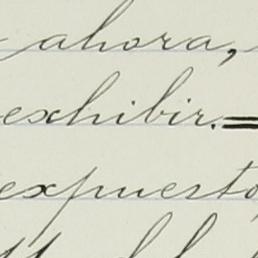 ahora,
exhibir.=
expuesto